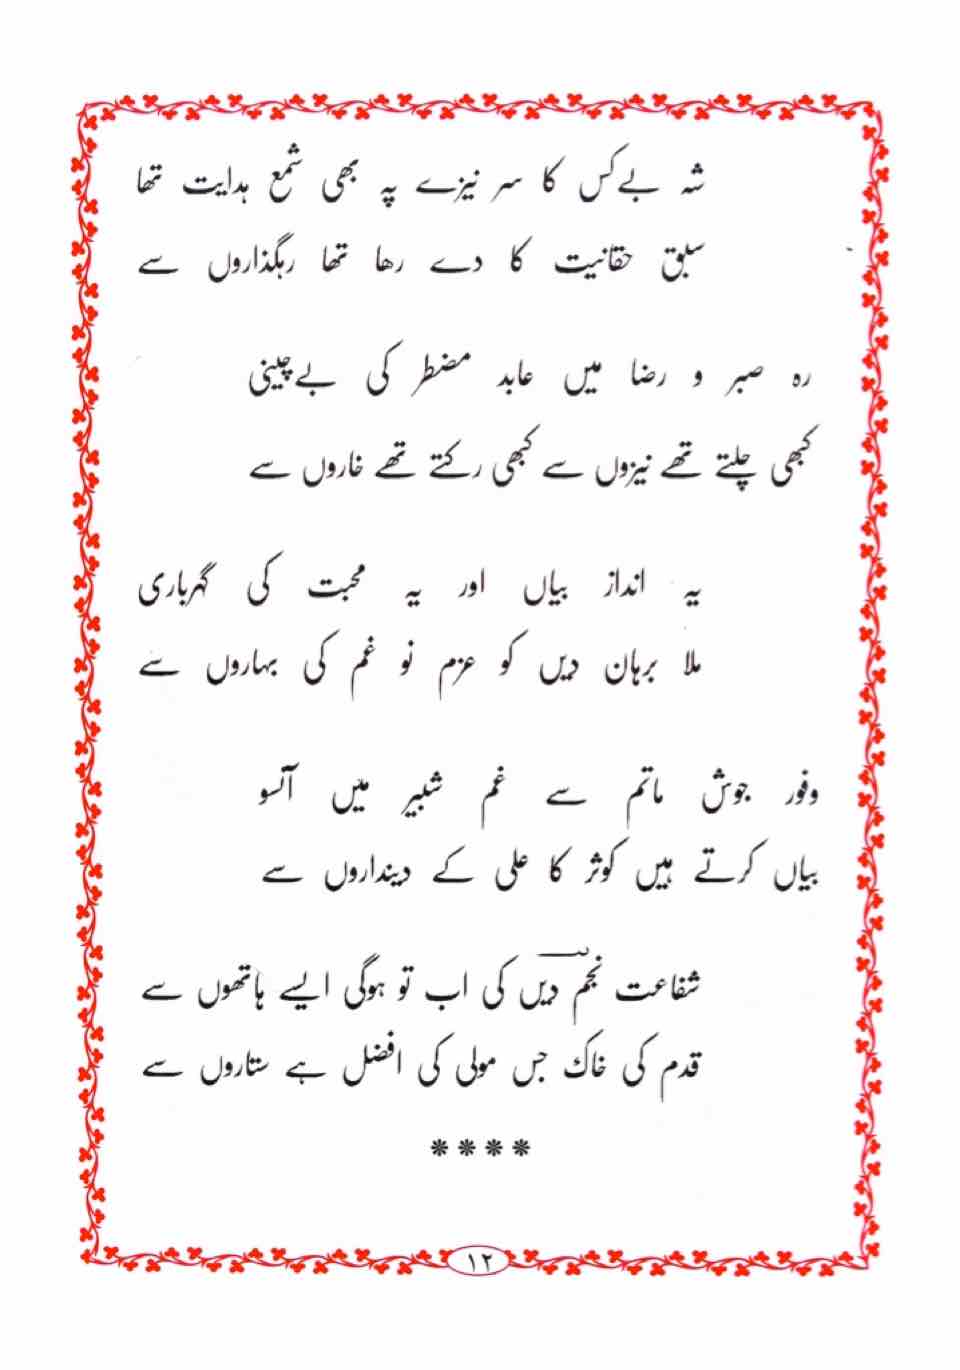 شہ بےکس کا سر نیزے پہ بھی شمع ہدایت تھا
سبق حقانیت کا دے رھا تھا رہگذاروں سے
رہ صبر و رضا میں عابد مضطر کی بےچینی
کبھی چلتے تھے نیزوں سے کبھی رکتے تھے خاروں سے
یہ انداز بیاں اور یہ محبت کی گہرباری
ملا برہان دیں کو عزم نو غم کی بہاروں سے
وفور جوش ماتم سے غم شبیر میں آنسو
بیاں کرتے ہیں کوثر کا علی کے دینداروں سے
شفاعت نجم دیں کی اب تو ہوگی ایسے ہاتھوں سے
قدم کی خاک جس مولی کی افضل ہے ستاروں سے
****
۱۲